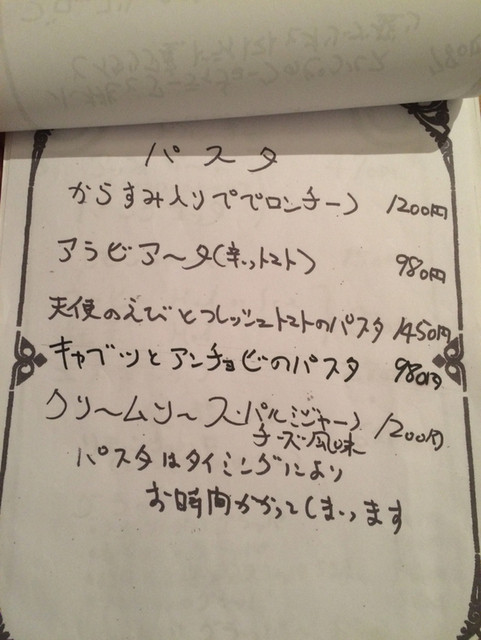 パスタ
からすみ入りペペロンチーノ 1200円
アラビアータ(辛いトマト) 980円
天使のえびとフレッシュトマトのパスタ 1450円
キャベツとアンチョビのパスタ 980円
クリームソース・パルミジャーノ
チーズ風味 1200円
パスタはタイミングにより
お時間かかってしまいます